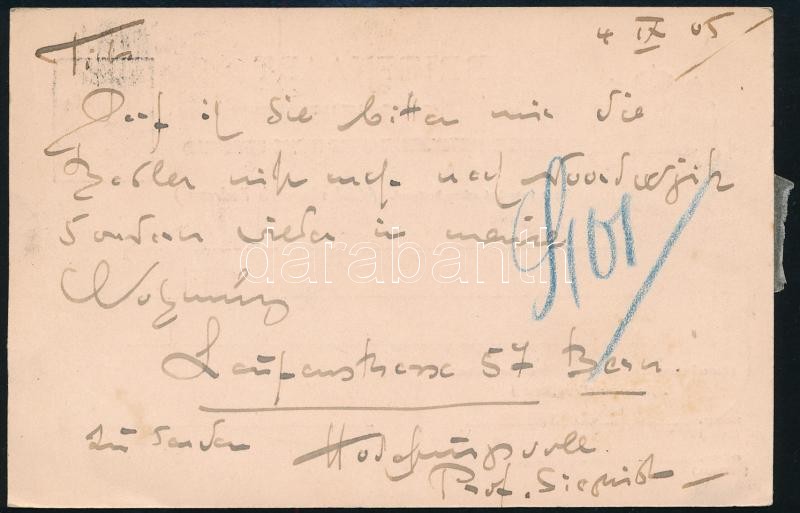 4 IX 05
Tit.
Darf ich Sie bitten mir die
Basler nicht mehr nach Noordwijk
sondern wieder in meine
Wohnung
Laupenstrasse 57 Bern.
zu senden Hochachtungsvoll
Prof. Siegrist
darabanth